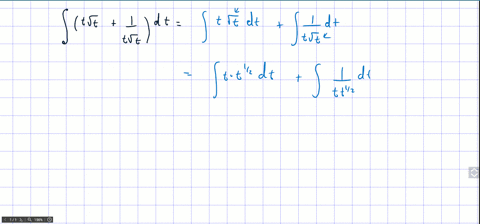 ∫(t√t + 1/(t√t)) dt = ∫ t √t dt + ∫ 1/(t√t) dt
= ∫ t · t^(1/2) dt + ∫ 1/(t t^(1/2)) dt